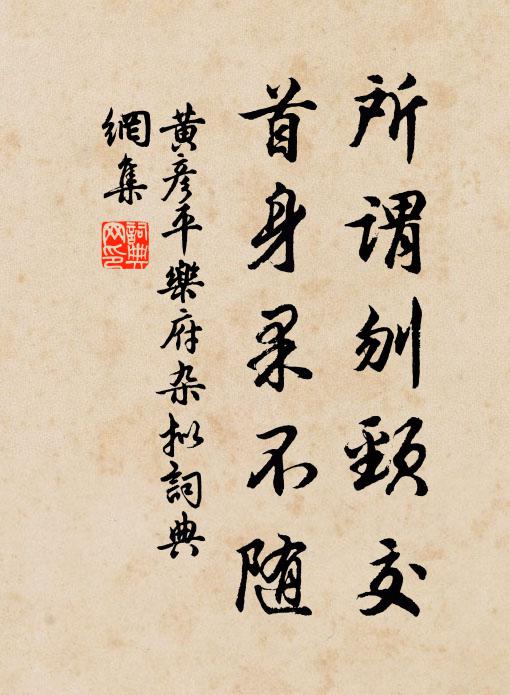 所謂刎頸交
首身果不随
黄彦平樂府杂拟詞典
網集
詞典
网印